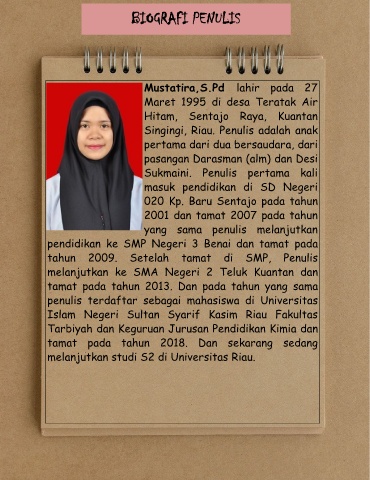 BIOGRAFI PENULIS
Mustatira,S.Pd lahir pada 27
Maret 1995 di desa Teratak Air
Hitam, Sentajo Raya, Kuantan
Singingi, Riau. Penulis adalah anak
pertama dari dua bersaudara, dari
pasangan Darasman (alm) dan Desi
Sukmaini. Penulis pertama kali
masuk pendidikan di SD Negeri
020 Kp. Baru Sentajo pada tahun
2001 dan tamat 2007 pada tahun
yang sama penulis melanjutkan
pendidikan ke SMP Negeri 3 Benai dan tamat pada
tahun 2009. Setelah tamat di SMP, Penulis
melanjutkan ke SMA Negeri 2 Teluk Kuantan dan
tamat pada tahun 2013. Dan pada tahun yang sama
penulis terdaftar sebagai mahasiswa di Universitas
Islam Negeri Sultan Syarif Kasim Riau Fakultas
Tarbiyah dan Keguruan Jurusan Pendidikan Kimia dan
tamat pada tahun 2018. Dan sekarang sedang
melanjutkan studi S2 di Universitas Riau.